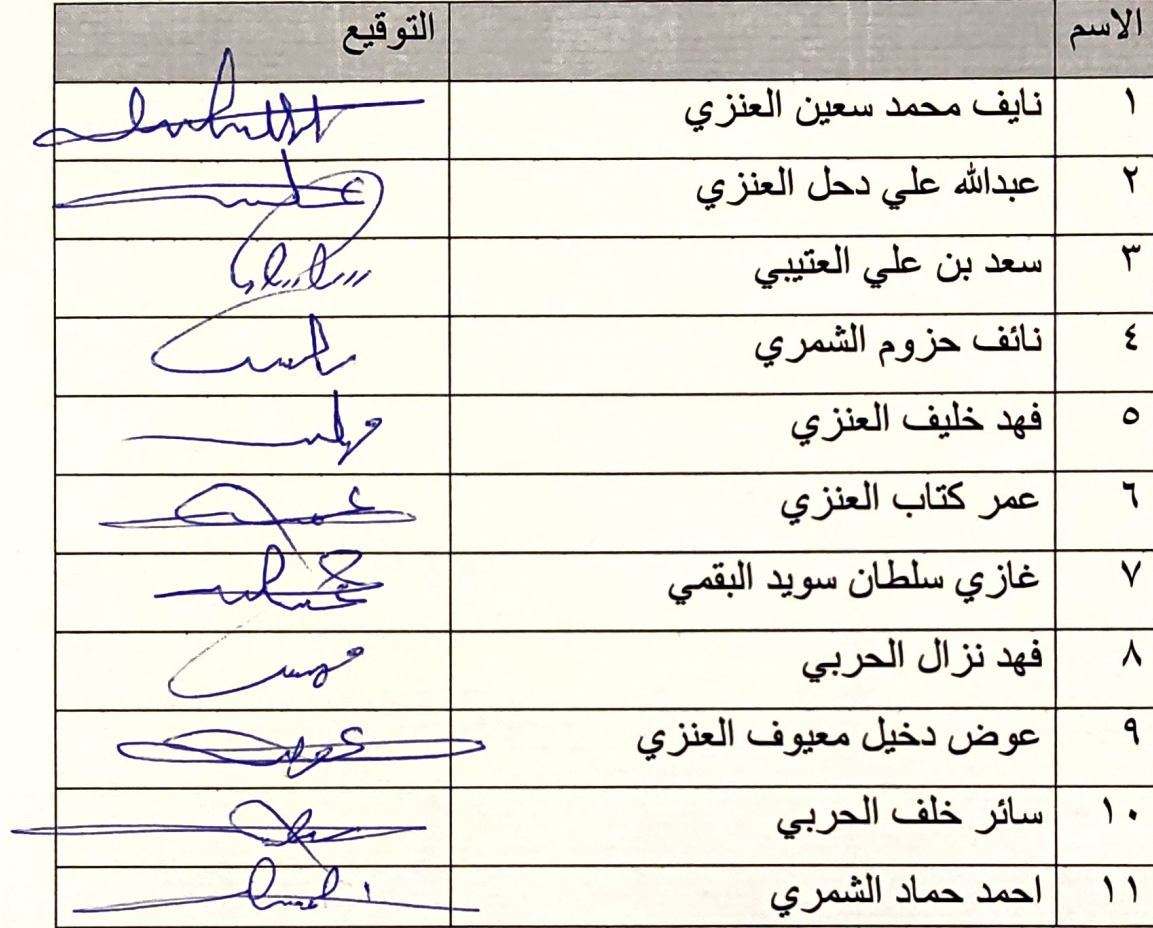 الاسم التوقيع
١ نايف محمد سعين العنزي
٢ عبدالله علي دحل العنزي
٣ سعد بن علي العتيبي
٤ نائف حزوم الشمري
٥ فهد خليف العنزي
٦ عمر كتاب العنزي
٧ غازي سلطان سويد البقمي
٨ فهد نزال الحربي
٩ عوض دخيل معيوف العنزي
١٠ سائر خلف الحربي
١١ احمد حماد الشمري